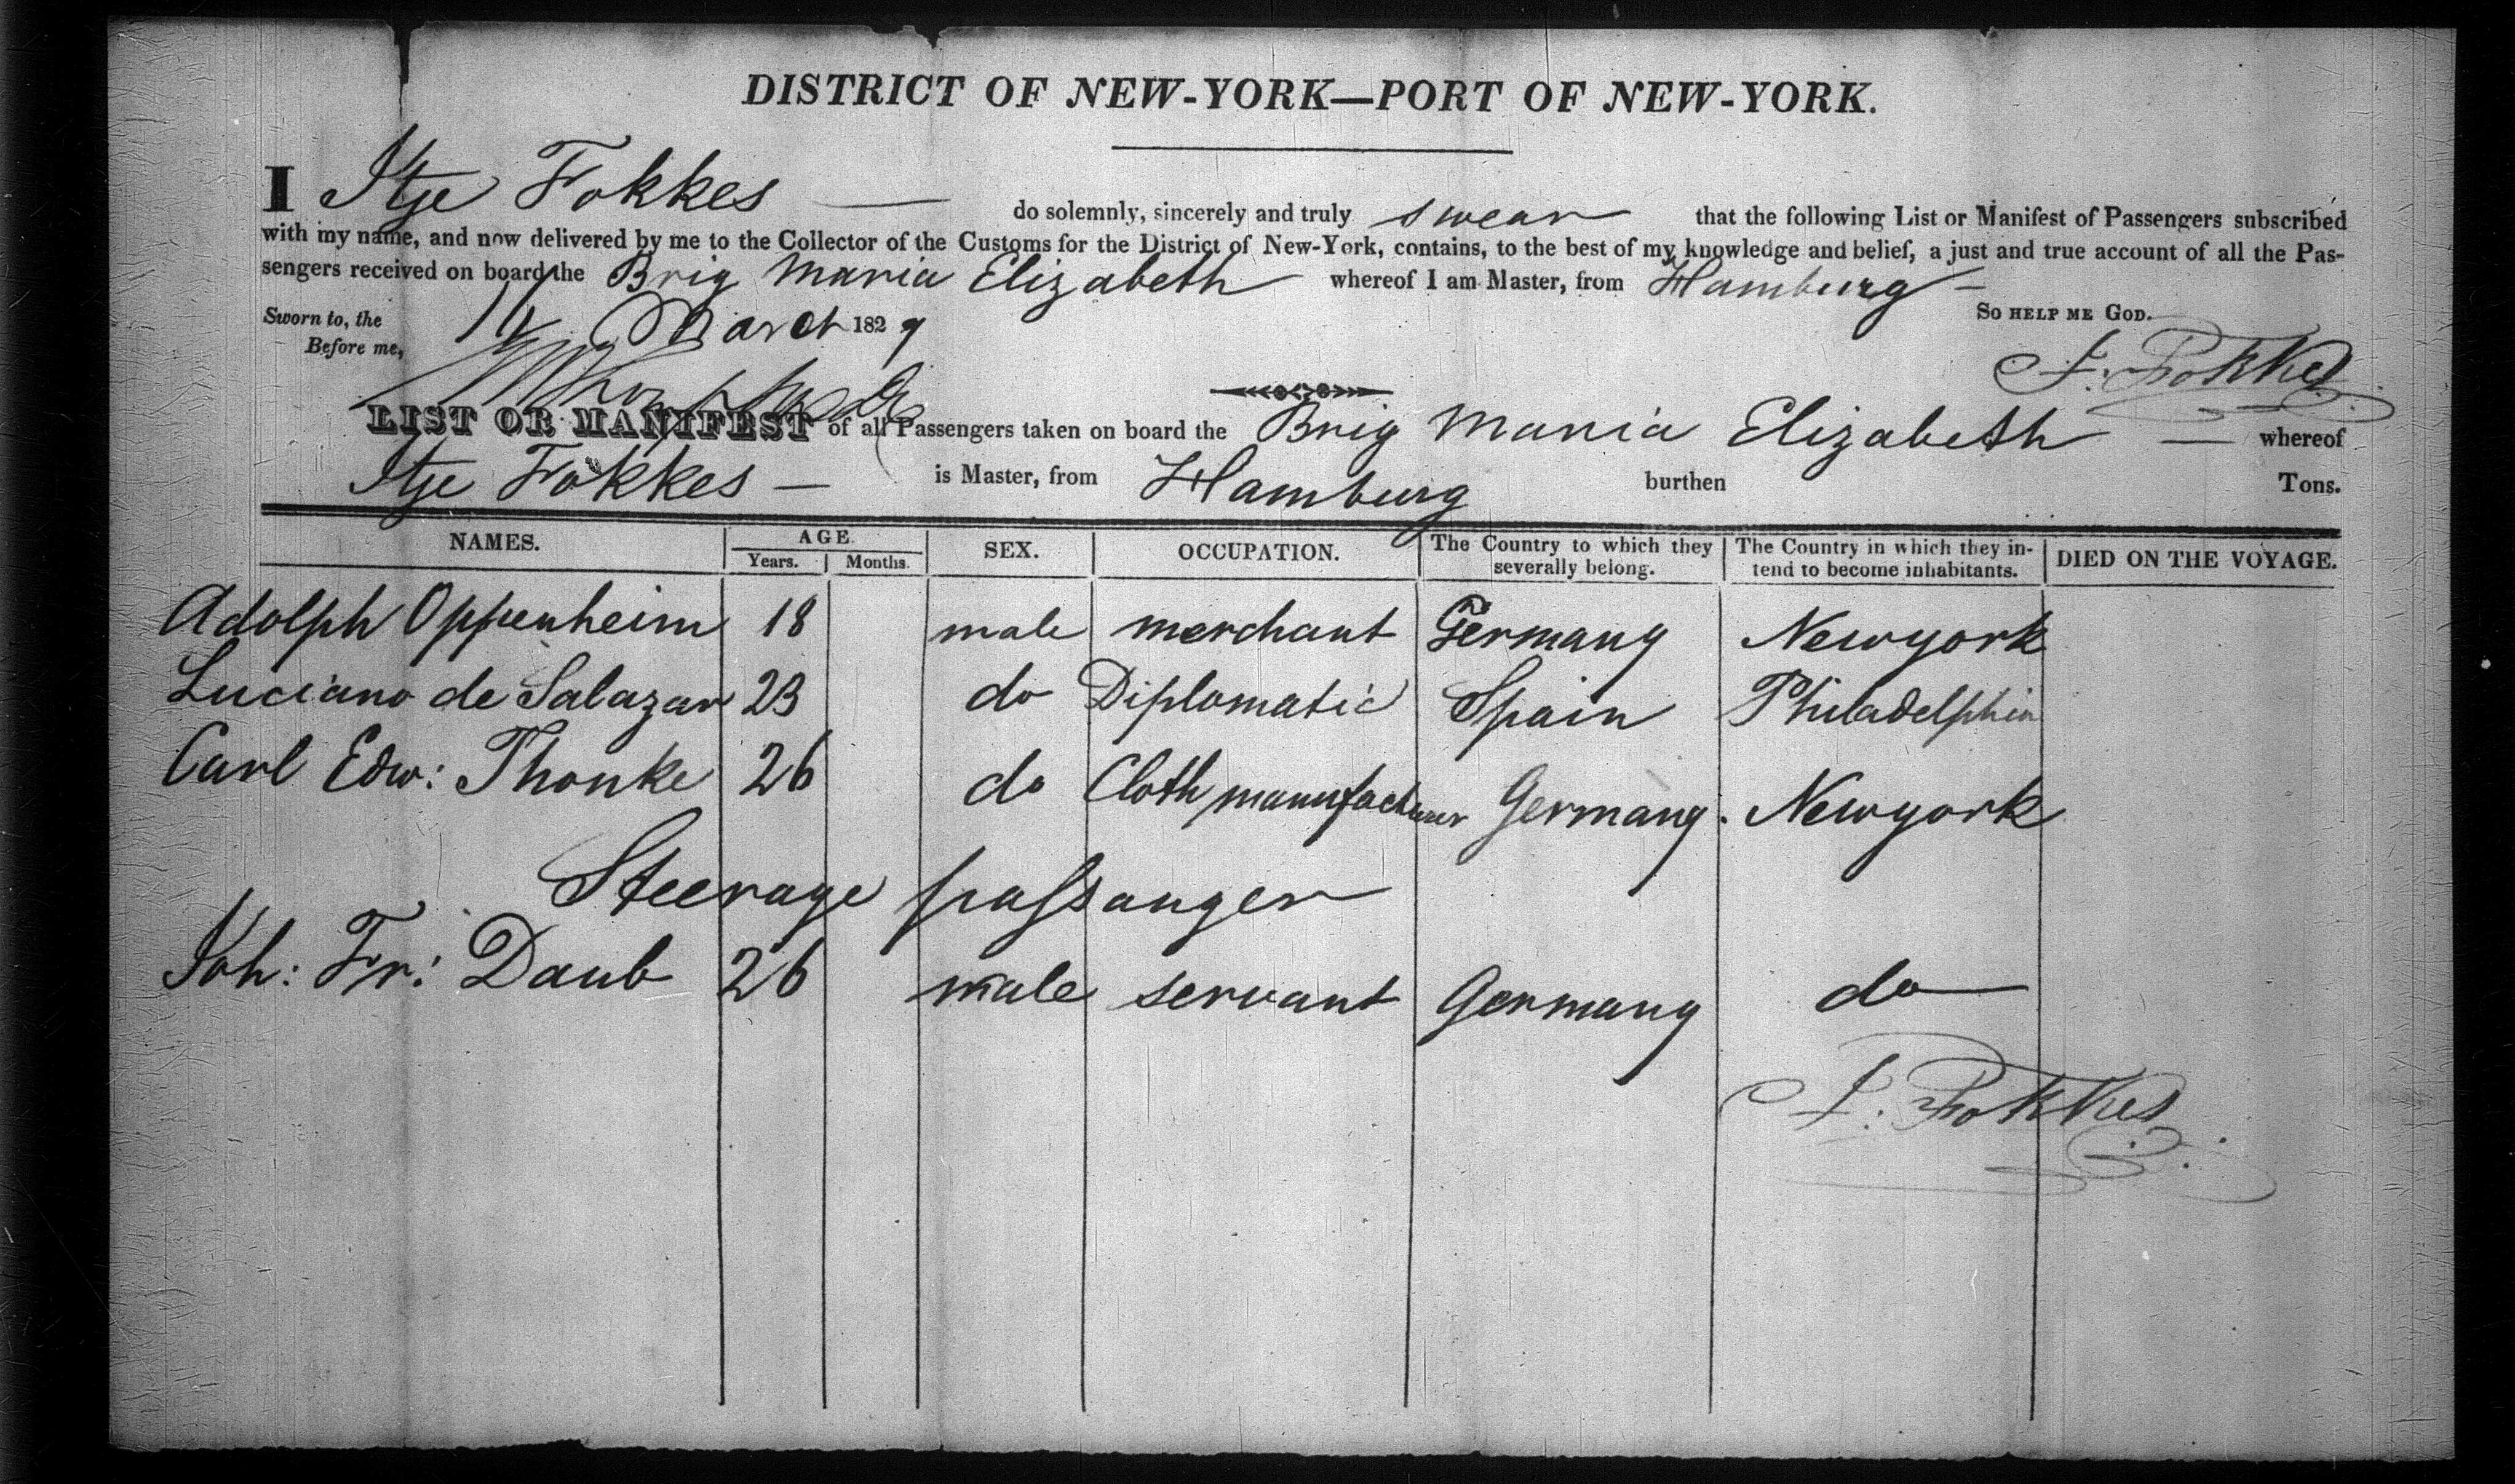 DISTRICT OF NEW-YORK—PORT OF NEW-YORK.
I Itje Fokkes — do solemnly, sincerely and truly swear that the following List or Manifest of Passengers subscribed
with my name, and now delivered by me to the Collector of the Customs for the District of New-York, contains, to the best of my knowledge and belief, a just and true account of all the Pas-
sengers received on board the Brig Maria Elizabeth whereof I am Master, from Hamburg —
So HELP ME GOD.
Sworn to, the 14 March 1829
Before me,
I. Fokkes
LIST OR MANIFEST of all Passengers taken on board the Brig Maria Elizabeth — whereof
Itje Fokkes — is Master, from Hamburg burthen Tons.
NAMES. AGE. Years. Months. SEX. OCCUPATION. The Country to which they severally belong. The Country in which they in-tend to become inhabitants. DIED ON THE VOYAGE.
Adolph Oppenheim 18 male merchant Germany Newyork
Luciano de Salazar 23 do Diplomatic Spain Philadelphia
Carl Edw: Thonke 26 do Cloth manufacturer Germany. Newyork
Steerage passanger
Joh: Fr: Daub 26 male servant Germany do
I. Fokkes